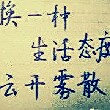 换一种
生活态度
云开雾散